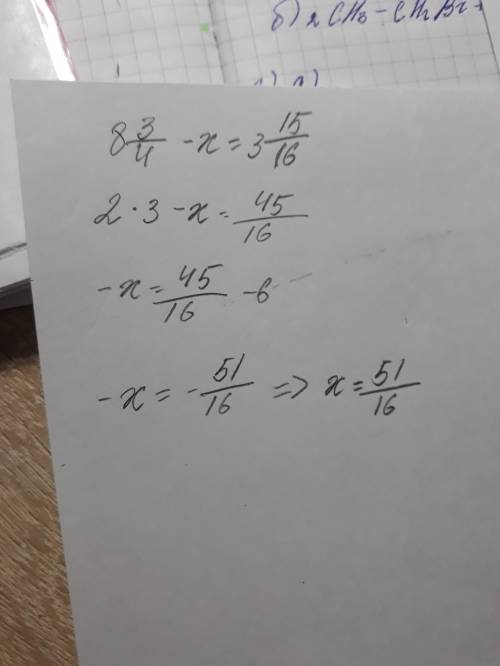 б) 2 CH3 - CH2Br +
8 3/4 - x = 3 15/16
2 · 3 - x = 45/16
- x = 45/16 - 6
- x = - 51/16 => x = 51/16